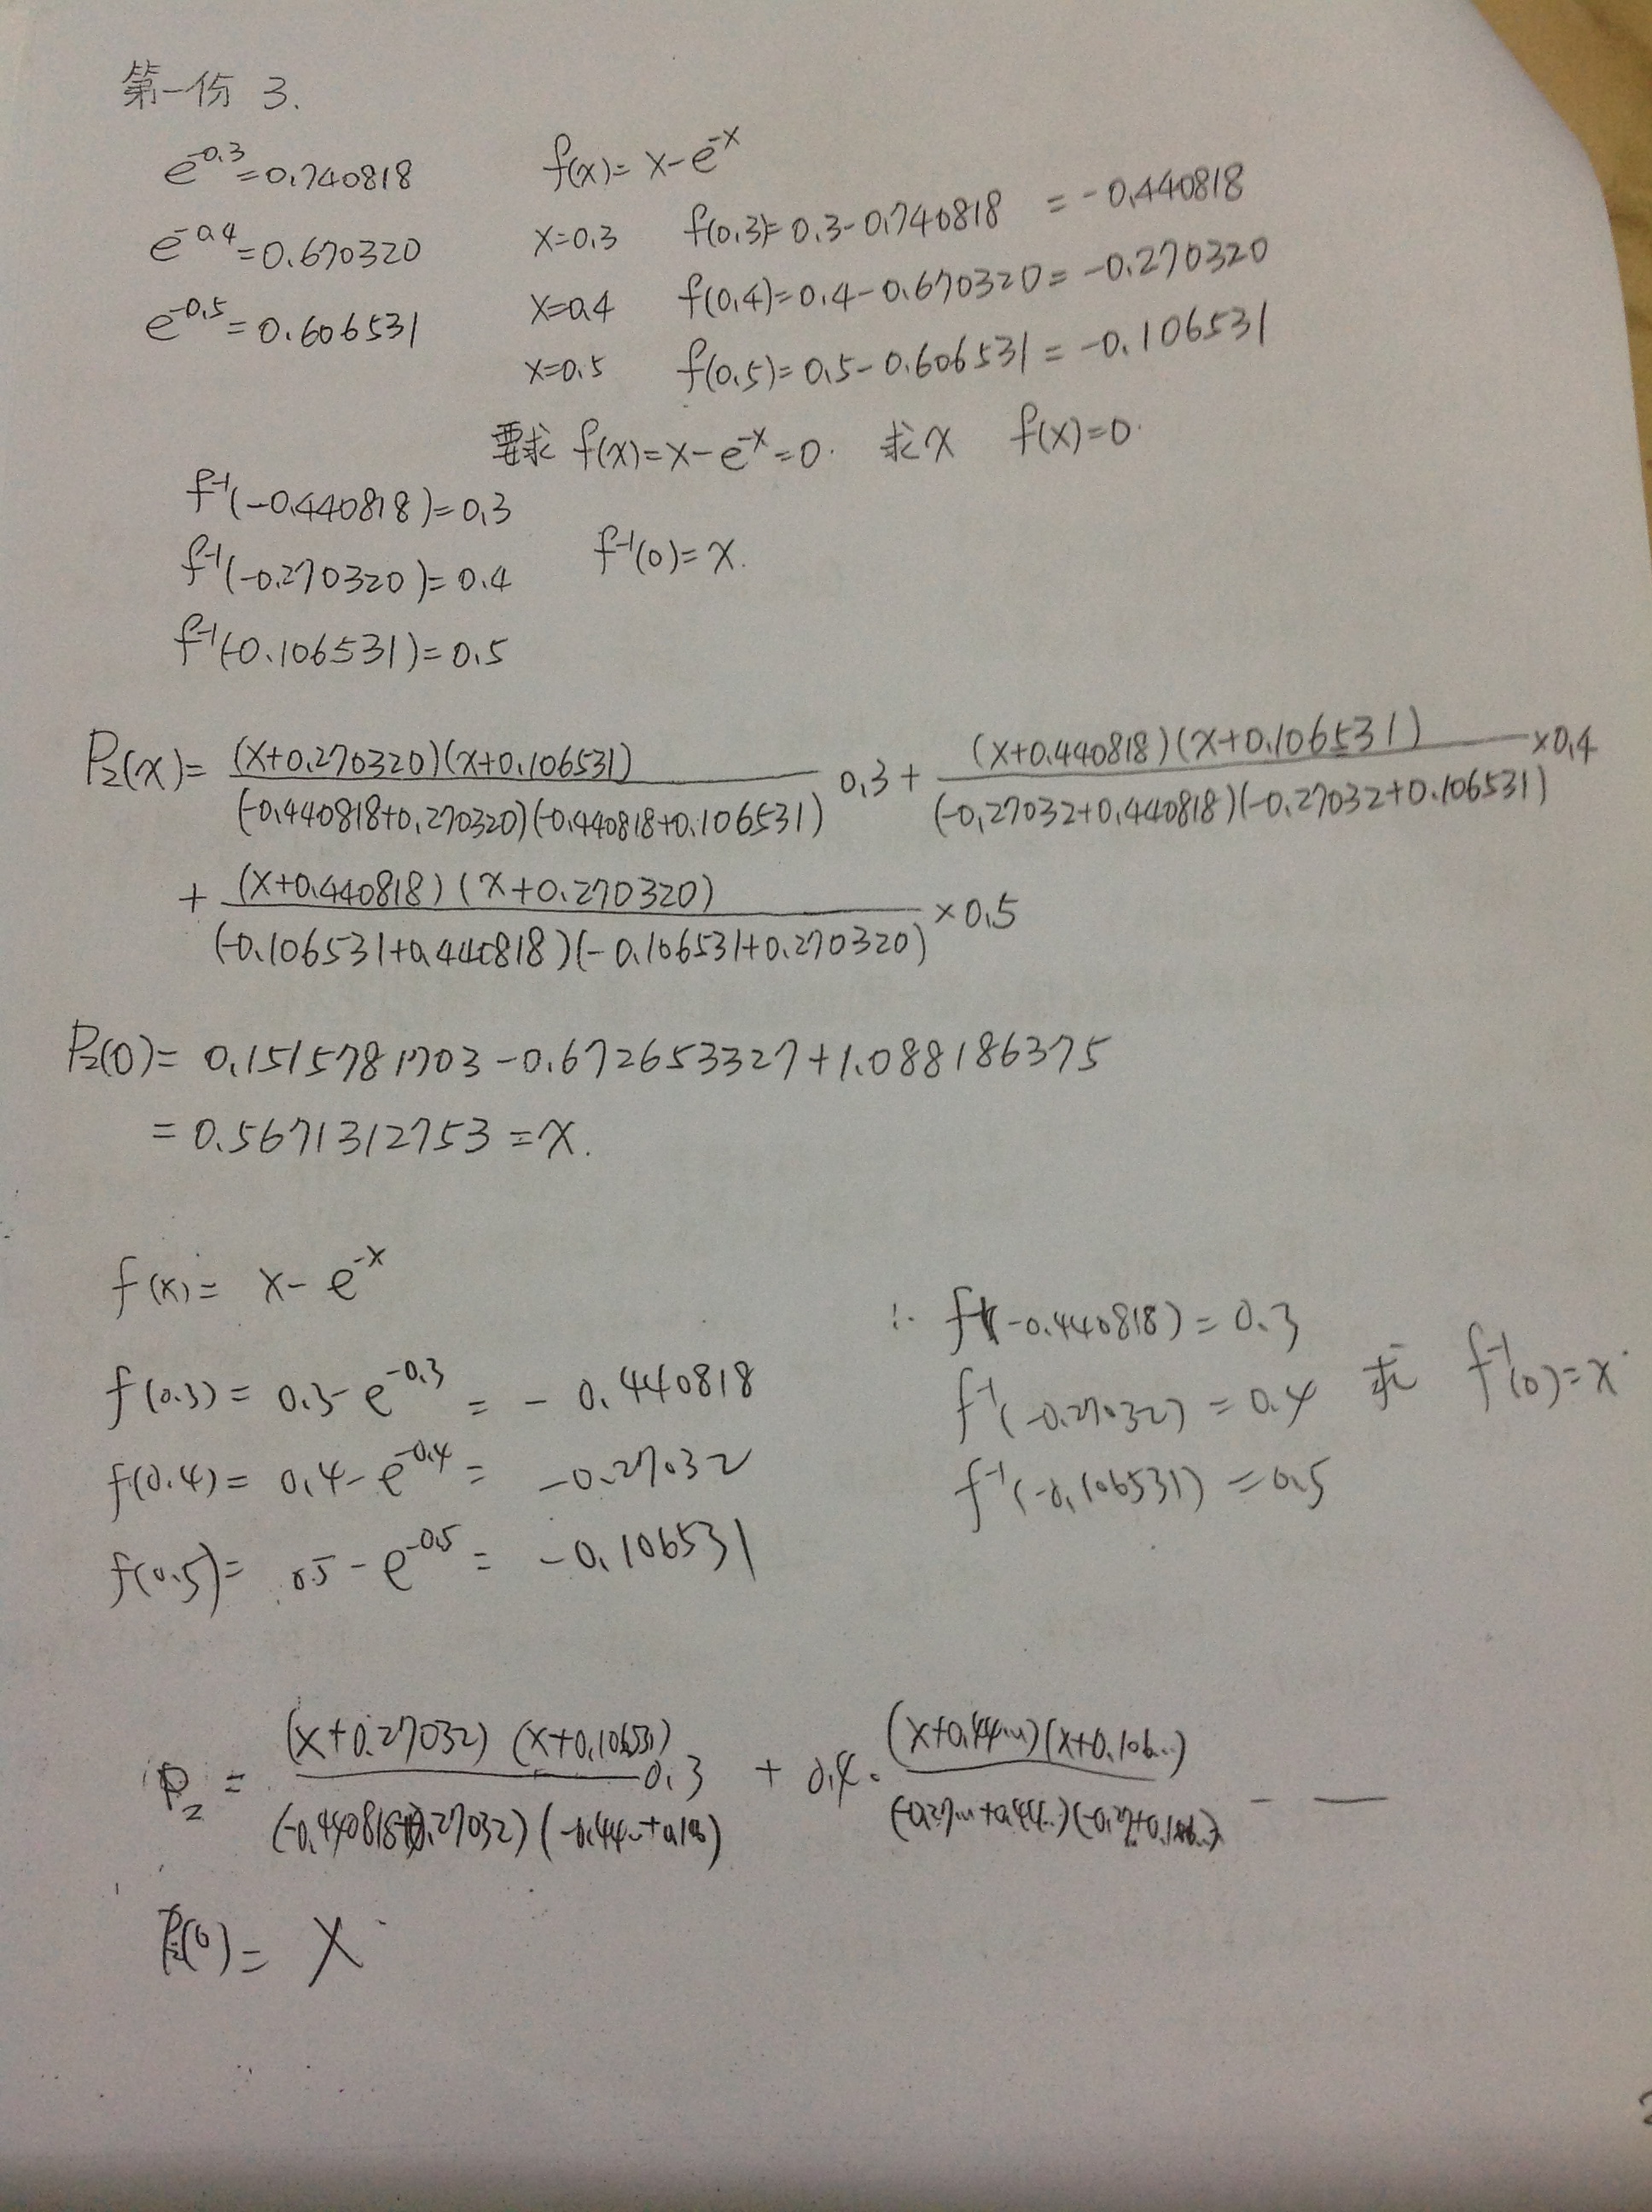 第一份 3.
e^-0.3=0.740818 f(x)= x-e^-x
x=0.3 f(0.3)=0.3-0.740818 = -0.440818
e^-0.4=0.670320
x=0.4 f(0.4)=0.4-0.670320=-0.270320
e^-0.5=0.606531
x=0.5 f(0.5)=0.5-0.606531=-0.106531
要求 f(x)=x-e^-x=0. 求x f(x)=0.
f^-1(-0.440818)=0.3
f^-1(-0.270320)=0.4 f^-1(0)=x.
f^-1(-0.106531)=0.5
P₂(x)= (x+0.270320)(x+0.106531) / (-0.440818+0.270320)(-0.440818+0.106531) 0.3+ (x+0.440818)(x+0.106531) / (-0.27032+0.440818)(-0.27032+0.106531) ×0.4
+ (x+0.440818)(x+0.270320) / (-0.106531+0.440818)(-0.106531+0.270320) ×0.5
P₂(0)= 0.1515781703-0.672653327+1.088186375
=0.5671312753=x.
f(x)= x-e^-x
f(0.3)= 0.3-e^-0.3 = -0.440818
f(0.4)= 0.4-e^-0.4 = -0.27032
f(0.5)= 0.5-e^-0.5 = -0.106531
∴ f^-1(-0.440818)=0.3
f^-1(-0.27032)=0.4 求 f^-1(0)=x.
f^-1(-0.106531)=0.5
P₂ = (x+0.27032)(x+0.10653) / (-0.440818+0.27032)(-0.44...+0.106) 0.3 + 0.4. (x+0.44...)(x+0.106...) / (-0.27...+0.44...)(-0.27+0.106...) - —
P₂(0)= x.